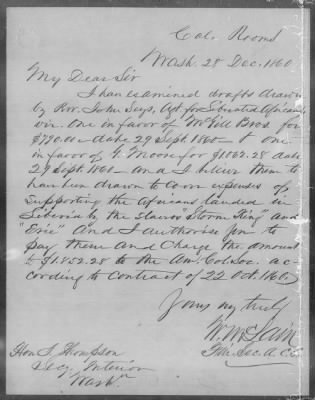 Col. Rooms
Wash. 28 Dec. 1860
My Dear Sir
I have examined drafts drawn
by Rev. John Seys, Agt. for Liberated Africans
viz. one in favor of McGill Bros. for
$790.00 – date 29 Sept. 1860 – & one
in favor of Moore for $1062.28 date
29 Sept. 1860 – and I believe them to
have been drawn to cover expenses of
supporting the Africans landed in
Liberia by the slavers "Storm King" and
"Erie" And I authorise you to
pay them and charge the amount
$1.852.28 to the Am. Col. Soc. ac-
cording to contract of 22 Oct. 1860.
Yours very truly
W. McLain
Fin. Sec. A. C. S.
Hon J. Thompson
Secy. Interior
Wash.